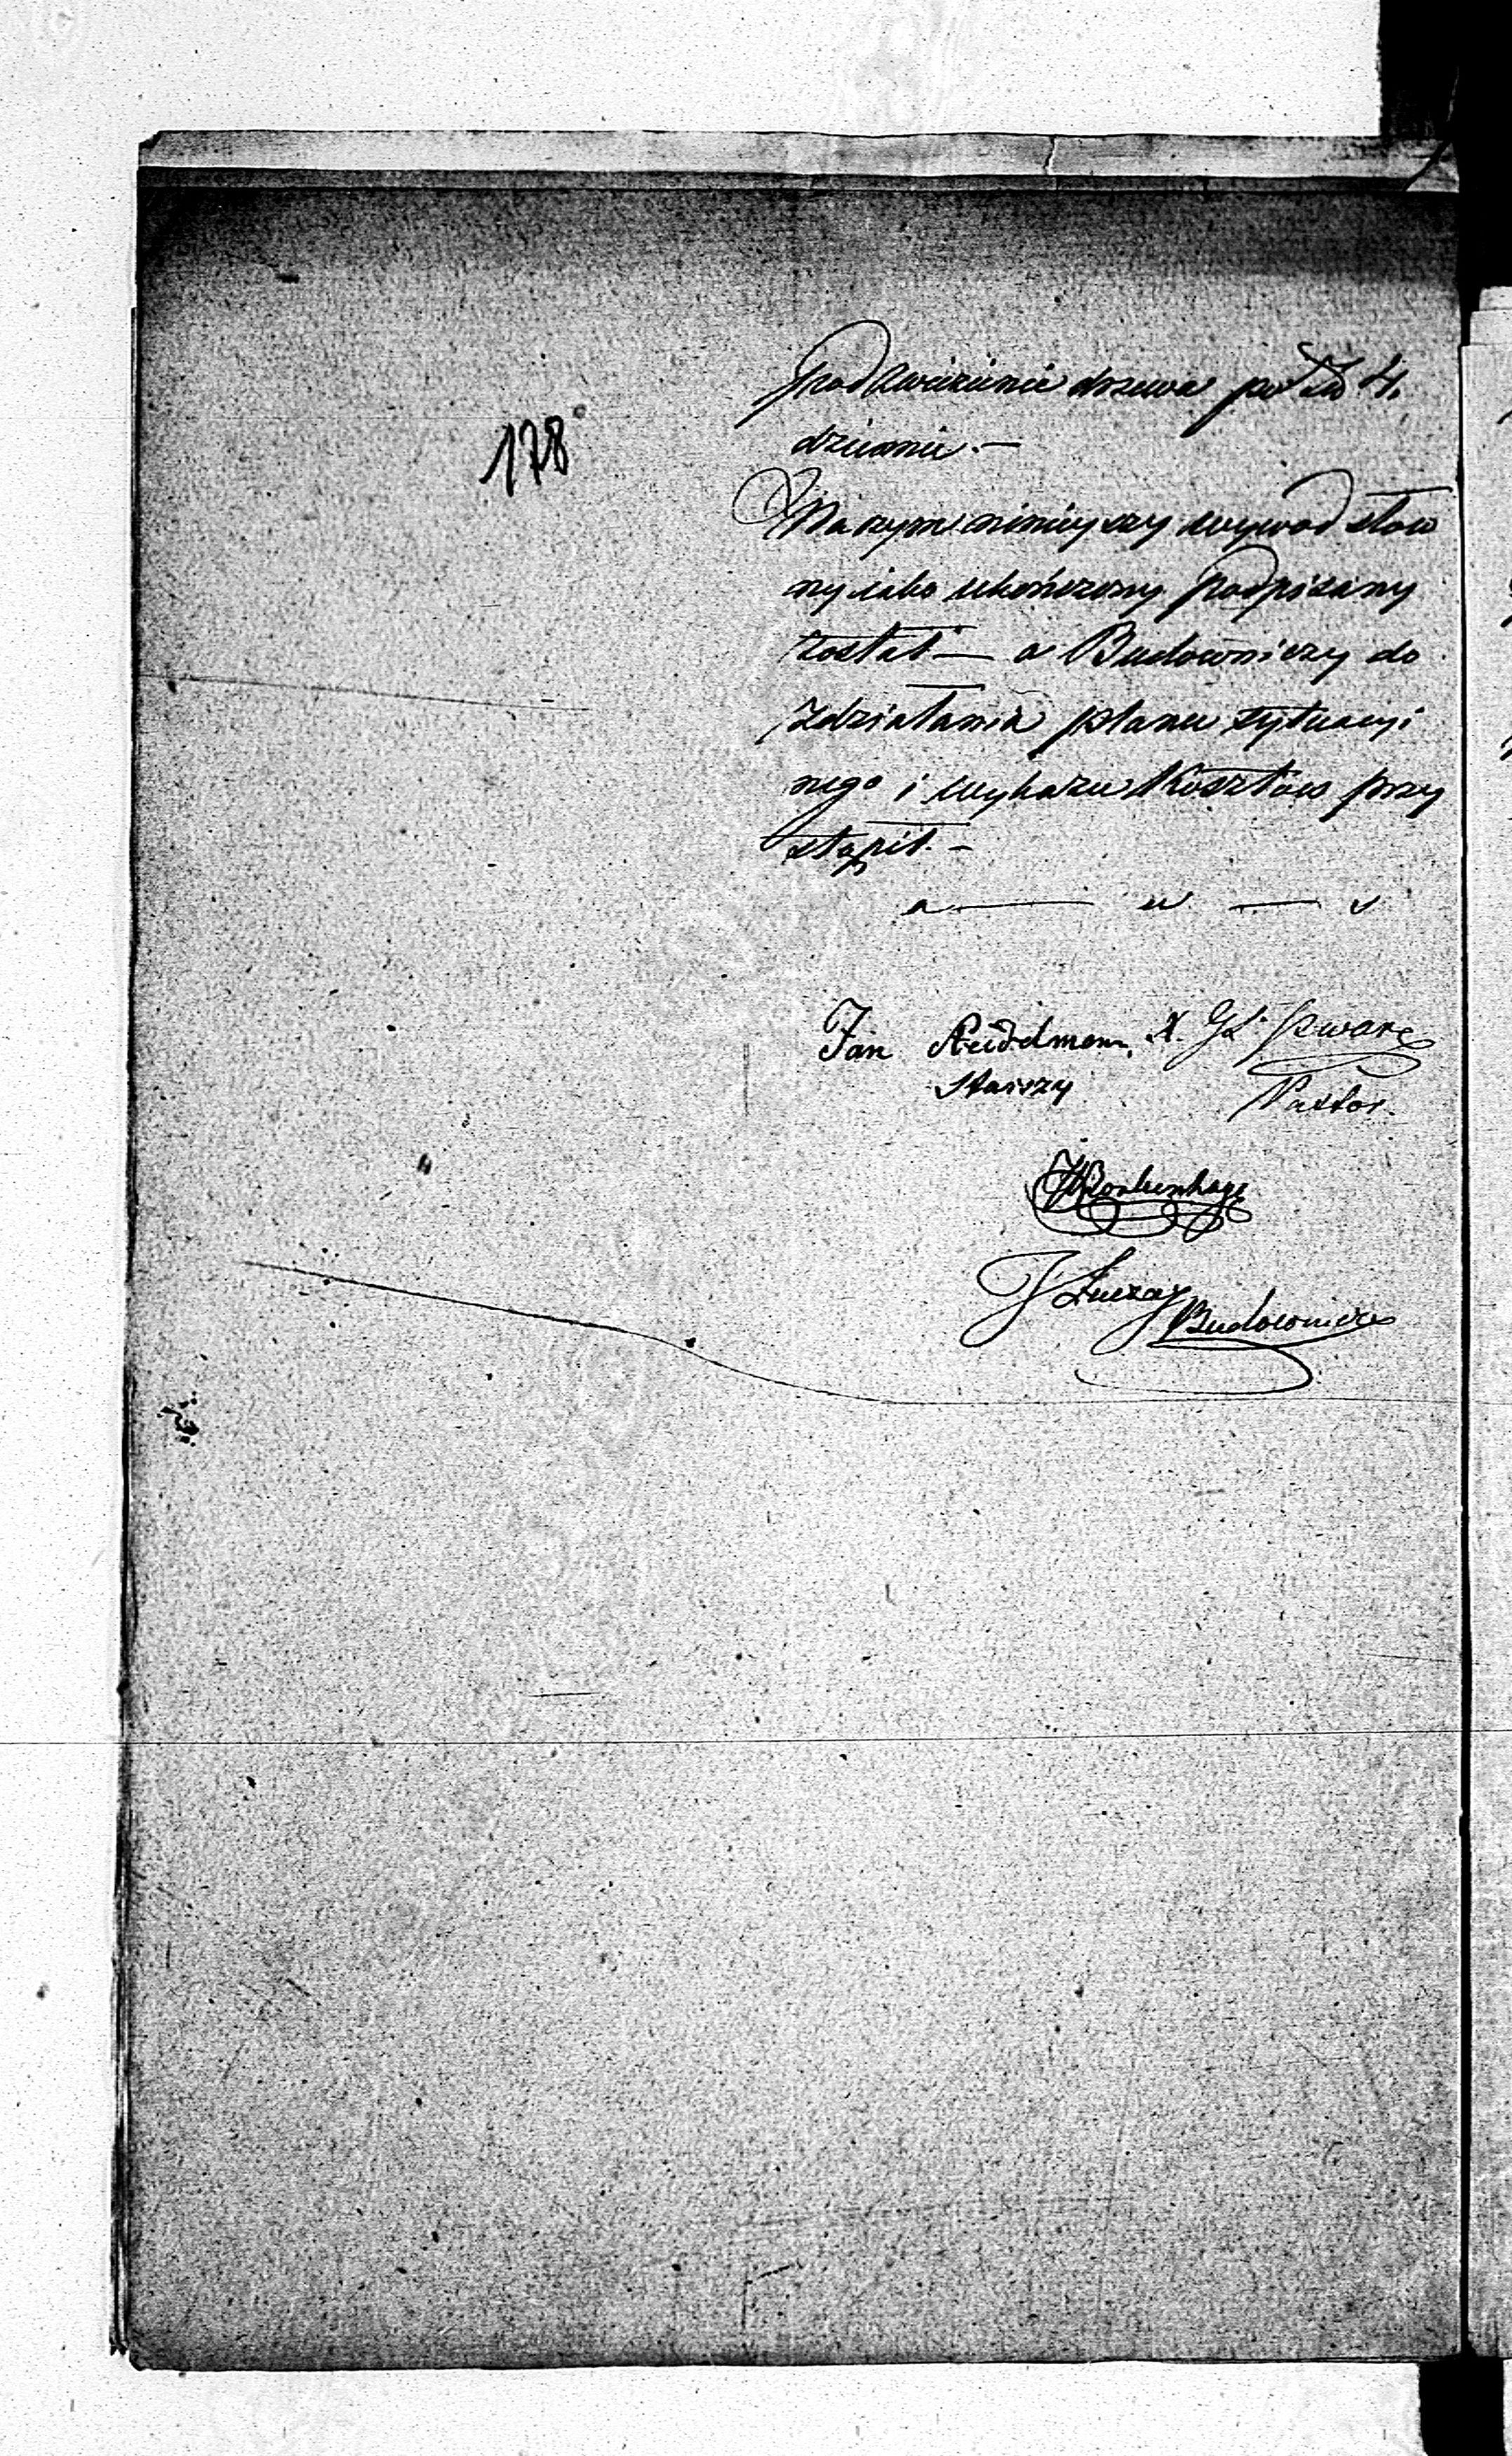 178
podzwiezienie drzewa po Zł 4.
dziennie. —
Na czym niniejszy wywod słow
ny iako ukończony podpisany
został — a Budowniczy do
zdziałania planu sytuacyi
nego i wykazu Kosztów przy
stąpił. —
a — u — s
Jan Reidelmann
Starszy
Pastor.
J Łuczay
Budowniczy